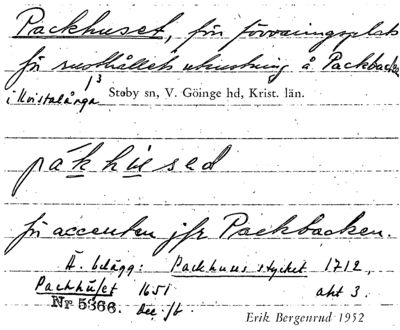 Packhuset, förr förvaringsplats
för rusthållets utrustning å Packbacken
i Kvistalånga 1³ Stoby sn, V. Göinge hd, Krist. län.
påkhùsed
för accenten jfr Packbacken.
Ä. belägg: Packhuus stycket 1712,
Packhúset 1651 akt 3.
Nr 5366. Dec. /t.
Erik Bergenrud 1952